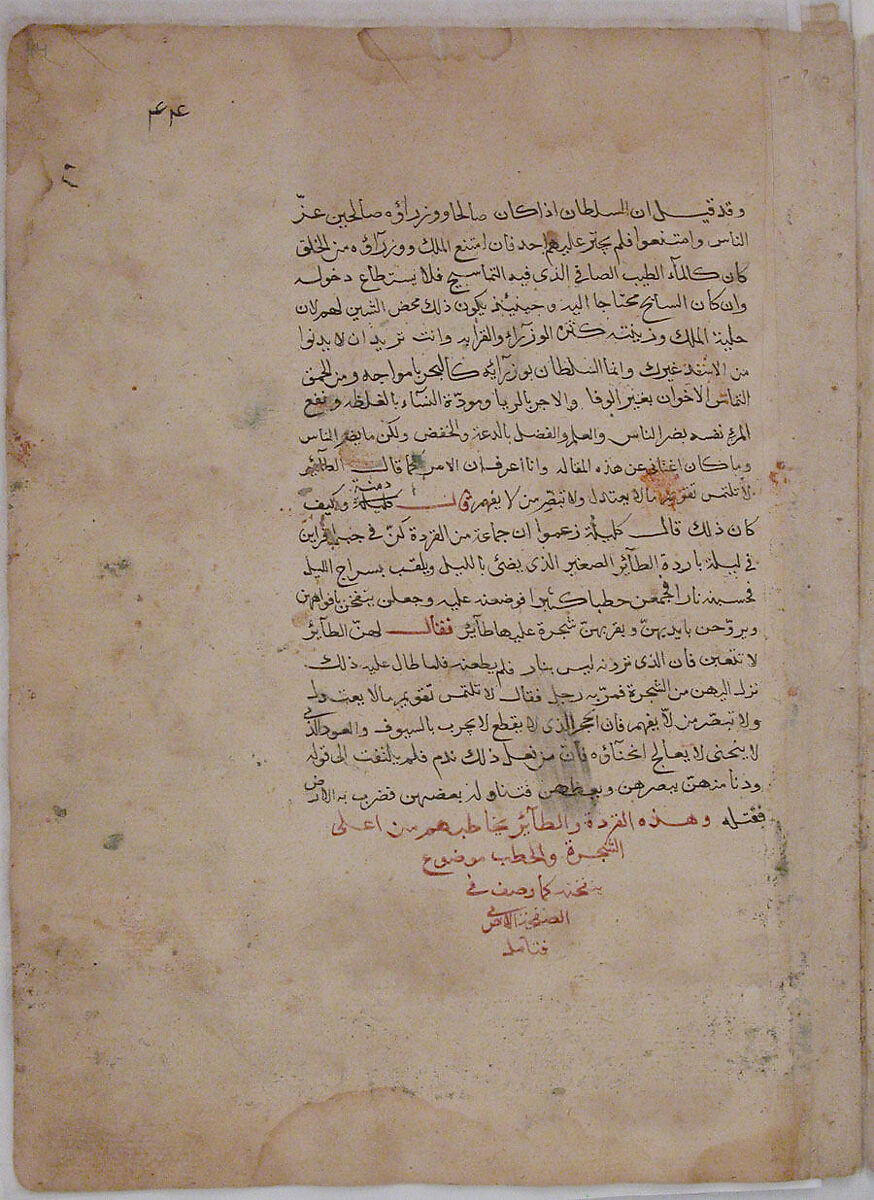 ٤٤
٢
وقد قيل ان السلطان اذا كان صالحا ووزرآؤه صالحين عزّ
الناس وامتنعوا فلم يجتر عليهم احد فان امتنع الملك ووزرآؤه من الخلق
كان كالمآء الطيب الصافي الذى فيه التماسيح فلا يستطاع دخوله
وان كان السابح محتاجا اليه وحينيذ يكون ذلك محض الشين لهم لان
حلية الملك وزينته كثرة الوزرآء والقرابه وانت تريد ان لا يدنوا
من الاسد غيرك وانما السلطان بوزرآيه كالبحر بامواجه ومن الحمق
التماس الاخوان بغير الوفا والاجر بالريا ومودّة النسآء بالغلظه ونفع
المرء نفسه بضر الناس والعلم والفضل بالدعة والخفض ولكن ما يضر الناس
وما كان اغناني عن هذه المقاله وانا اعرف ان الامر كما قال الطآئر
لا تلتمس تقويم ما لا يعتدل ولا تبصّر من لا يفهم قال دمنة كليلة وكيف
كان ذلك قال كليلة زعموا ان جماعة من القردة كنّ في جبل فراين
في ليلة باردة الطآئر الصغير الذى يضئ بالليل ويلقب بسراج الليل
فحسبنه نارا فجمعن حطبا كثيرا فوضعنه عليه وجعلن ينفخن بافواههن
ويروّحن بايديهنّ وبقربهنّ شجرة عليها طآئر فقال لهنّ الطآئر
لا تتعبن فان الذى ترونه ليس بنار فلم يطعنه فلما طال عليه ذلك
نزل اليهن من الشجرة فمرّ به رجل فقال لا تلتمس تقويم ما لا يعتدل
ولا تبصّر من لا يفهم فان الحجر الذى لا يقطع لا يجرب بالسيوف والعود الذى
لا ينحنى لا يعالج انحنآؤه فان من فعل ذلك ندم فلم يلتفت الى قوله
ودنا منهنّ يبصرهن ويعظهن فتناوله بعضهن فضرب به الارض
فقتله وهذه القردة والطآئر يخاطبهم من اعلى
الشجرة والحطب موضوع
ينفخنه كما وصف في
الصفحة الاخرى
فتامله